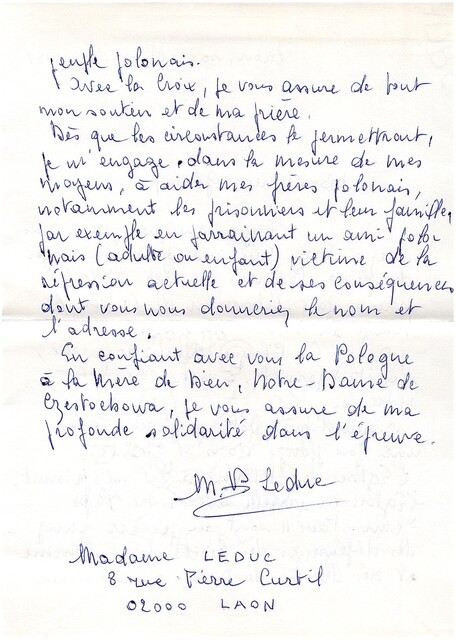 peuple polonais.
Avec la Croix, je vous assure de tout
mon soutien et de ma prière.
Dès que les circonstances le permettront,
je m'engage, dans la mesure de mes
moyens, à aider mes frères polonais,
notamment les prisonniers et leur famille,
par exemple en parrainant un ami polo-
nais (adulte ou enfant) victime de la
répression actuelle et de ses conséquences
dont vous nous donneriez le nom et
l'adresse.
En confiant avec vous la Pologne
à la Mère de Dieu, Notre-Dame de
Czestochowa, je vous assure de ma
profonde solidarité dans l'épreuve.
Leduc
Madame LEDUC
8 rue Pierre Curtil
02000 LAON